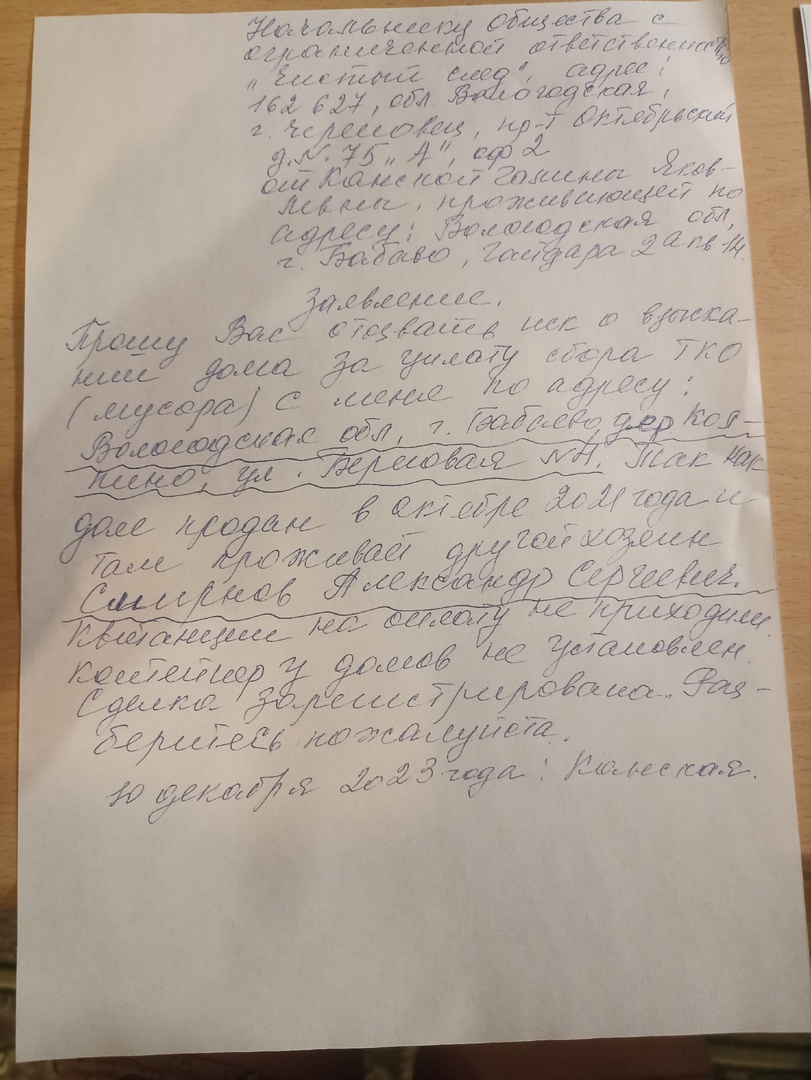 Начальнику общества с
ограниченной ответственностью
„Чистый след", адрес:
162627, обл. Вологодская,
г. Череповец, пр-т Октябрьский
д.№ 75 „А", оф 2
от Канской Галины Яков-
левны, проживающей по
адресу: Вологодская обл,
г. Бабаево, Гайдара 2а кв 14.
Заявление.
Прошу Вас отозвать иск о взыска-
нии дома за уплату сбора ТКО
(мусора) с меня по адресу:
Вологодская обл, г. Бабаево, дер Кол-
пино, ул. Береговая №. Так как
дом продан в октябре 2021 года и
там проживает другой хозяин
Смирнов Александр Сергеевич.
Квитанции на оплату не приходили.
Контейнер у домов не установлен.
Сделка зарегистрирована. Раз-
беритесь пожалуйста.
10 декабря 2023 года: Канская.